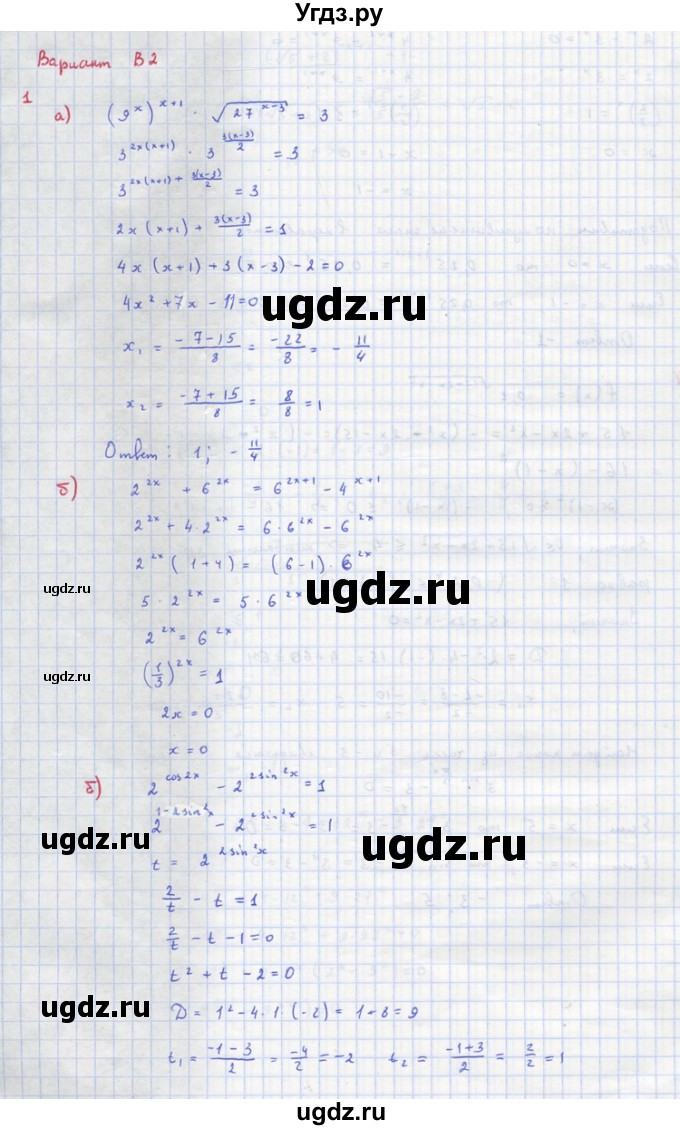 Угдз.ру
Вариант В2
1
а) (9^x)^{x+1} · √(27^{x-3}) = 3
3^{2x(x+1)} · 3^{3(x-3)/2} = 3
3^{2x(x+1) + 3(x-3)/2} = 3
2x(x+1) + 3(x-3)/2 = 1
4x(x+1) + 3(x-3) - 2 = 0
4x² + 7x - 11 = 0
ugdz.ru
x₁ = (-7-15)/8 = -22/8 = - 11/4
x₂ = (-7+15)/8 = 8/8 = 1
Ответ: 1; - 11/4
б) 2^{2x} + 6^{2x} = 6^{2x+1} - 4^{x+1}
2^{2x} + 4·2^{2x} = 6·6^{2x} - 6^{2x}
2^{2x}(1+4) = (6-1)·6^{2x}
ugdz.ru ugdz.ru
5·2^{2x} = 5·6^{2x}
2^{2x} = 6^{2x}
ugdz.ru
(1/3)^{2x} = 1
2x = 0
x = 0
б) 2^{cos2x} - 2^{2sin²x} = 1
2^{1-2sin²x} - 2^{2sin²x} = 1
ugdz.ru ugdz.ru
t = 2^{2sin²x}
2/t - t = 1
2/t - t - 1 = 0
t² + t - 2 = 0
ugdz.ru
D = 1² - 4·1·(-2) = 1+8 = 9
t₁ = (-1-3)/2 = -4/2 = -2 t₂ = (-1+3)/2 = 2/2 = 1
ugdz.ru